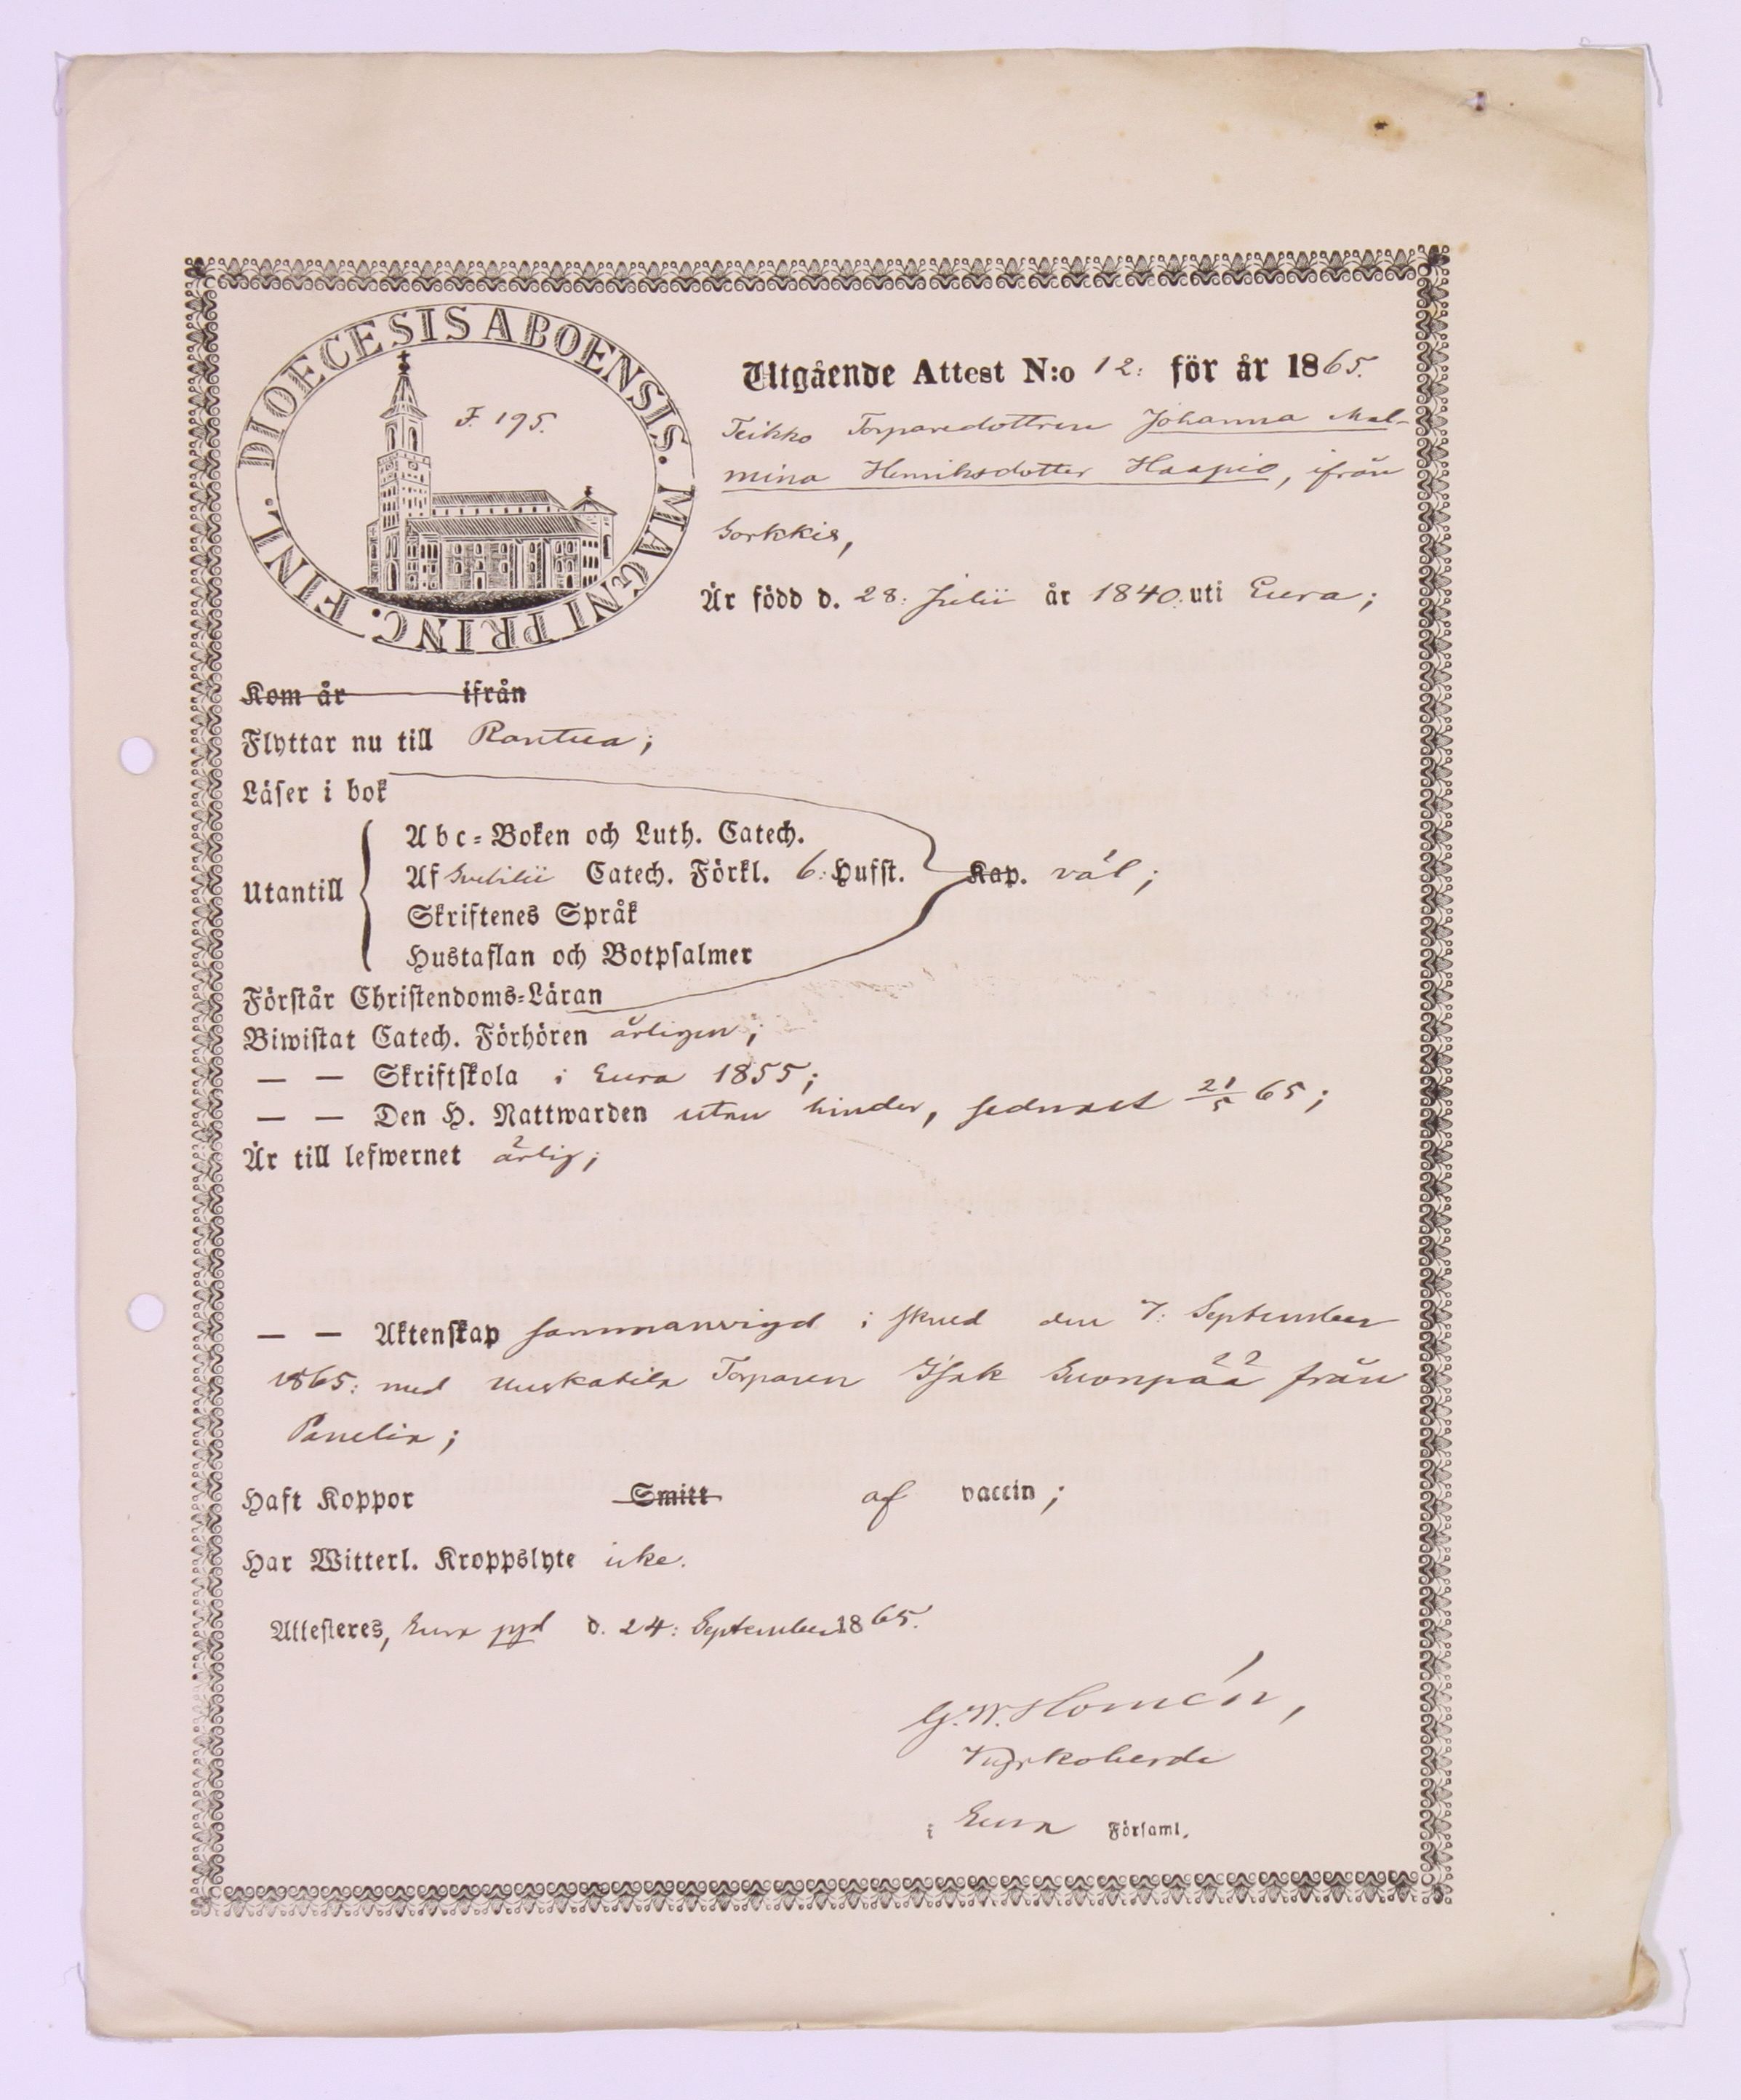 DIOECESIS ABOENSIS. MAGNI PRINC. FINL.
F. 195.
Utgående Attest N:o 12: för år 1865.
Teikko Torparedottren Johanna Mal-
mina Henriksdotter Haapio, ifrån
Sorkkis,
Är född d. 28: Julii år 1840: uti Eura;
Kom år ifrån
Flyttar nu till Rantua;
Läser i bok
Utantill
Abc-Boken och Luth. Catech.
Af Svebilii Catech. Förkl. 6: Hufst. Kap. väl;
Skriftenes Språk
Hustaflan och Botpsalmer
Förstår Christendoms-Läran
Biwistat Catech. Förhören årligen;
— — Skriftskola i Eura 1855;
— — Den H. Nattwarden utan hinder, sednast 21/5 65;
Är till lefwernet ärlig;
— — Äktenskap sammanvigd i skned den 7: September
1865: med Torparen Isak Suonpää från
Panelia;
Haft Koppor Smitt af vaccin;
Har Witterl. Kroppslyte icke.
Attesteres, Eura pgd d. 24: September 1865.
G. W. Homén,
Kyrkoherde
i Eura Församl.